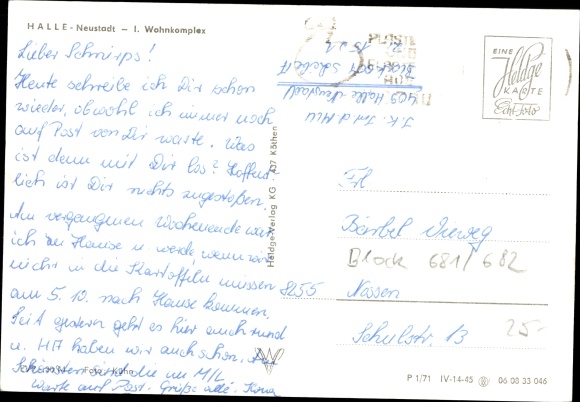 HALLE - Neustadt — I. Wohnkomplex
Lieber Schnirps!
Heute schreibe ich Dir schon
wieder, obwohl ich immer noch
auf Post von Dir warte. Was
ist denn mit Dir los? Hoffent-
lich ist Dir nichts zugestoßen.
Am vergangenen Wochenende war
ich zu Hause u. werde, wenn wir
nicht in die Kartoffeln müssen
am 5. 10. nach Hause kommen.
Seit gestern geht es hier auch rund
u. HA haben wir auch schon.
Schönsten sind die in M/L
Warte auf Post. Grüße alle.
Foto: Kühn
Heldge-Verlag KG 437 Köthen
409 Halle-Neustadt
Block 681
EINE
Heldge
KARTE
Echt Foto
Frl
Bärbel
Block 681/682
8255 Nossen
Schulstr. 13
25-
P 1/71 IV-14-45 06 08 33 046